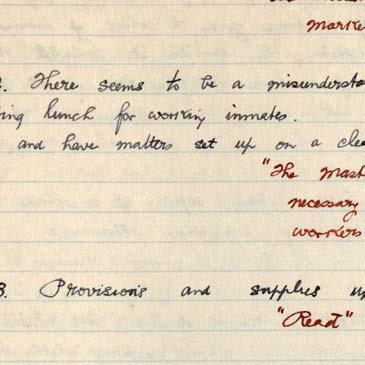 Marke
2. There seems to be a misundersta
ing lunch for working inmates.
and have matters set up on a clea
"The Mast
necessary
workers
3. Provisions and supplies u
"Read"